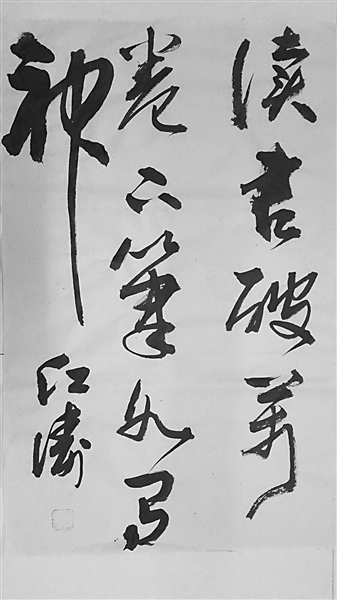 讀書破萬
卷下筆如有
神
江濤